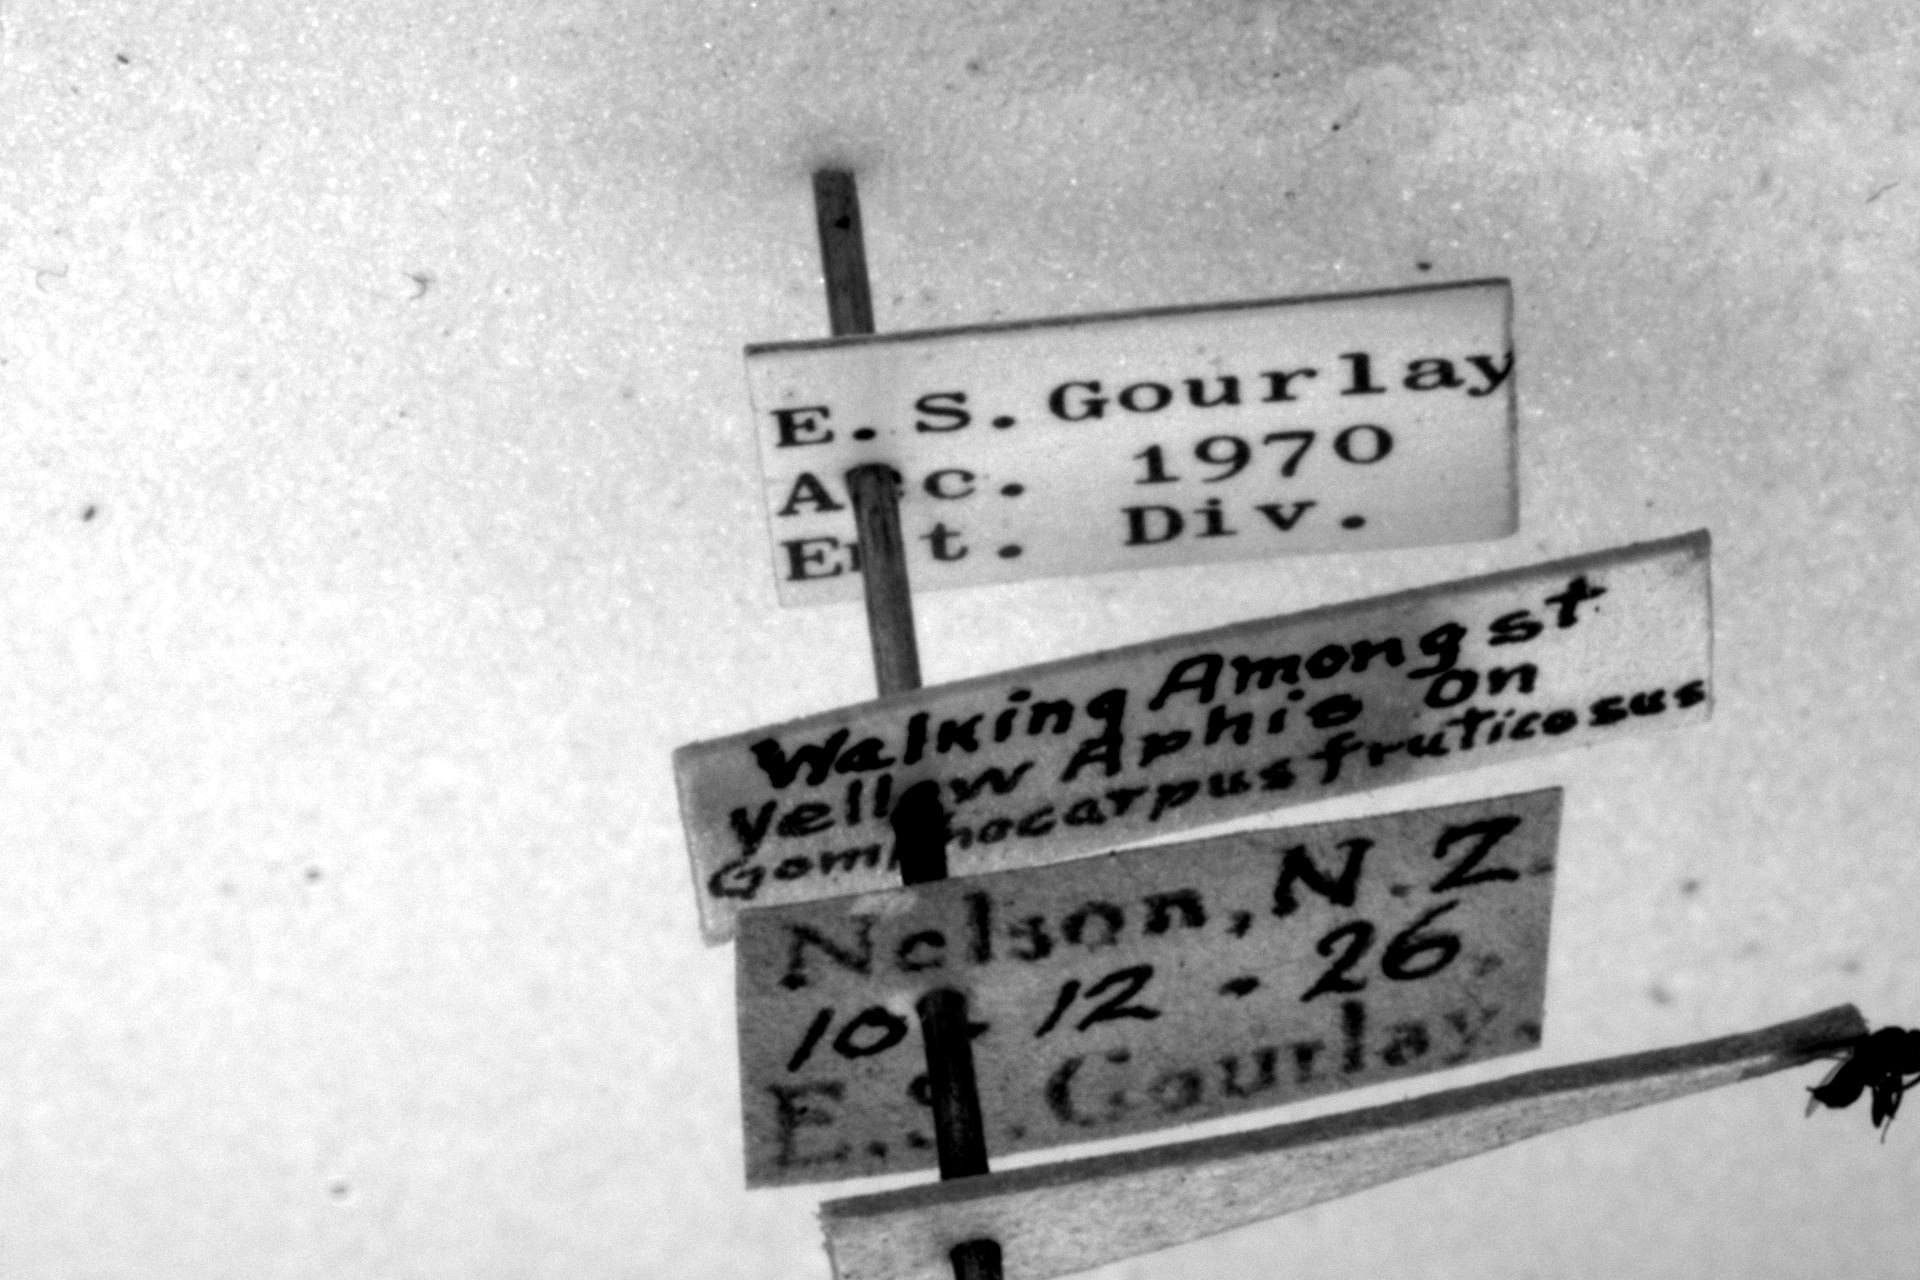 E. S. Gourlay
Acc. 1970
Ent. Div.
Walking Amongst
yellow Aphis on
Gomphocarpus fruticosus
Nelson, N.Z.
10 - 12 - 26
E.S. Gourlay.